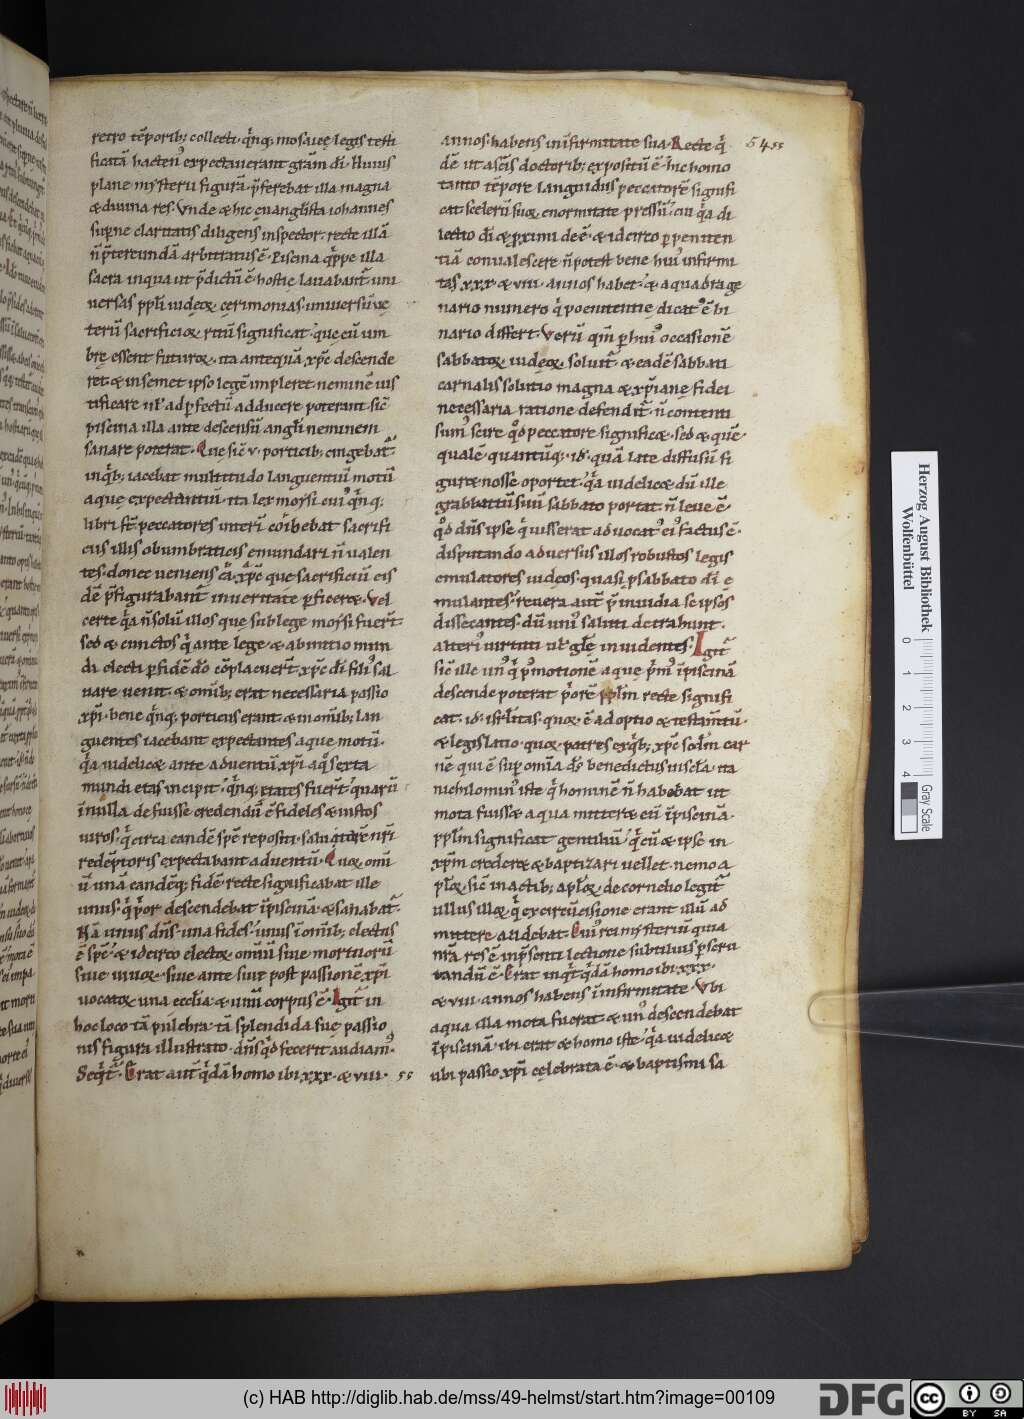 retro tēporib; collecti q̄nq; mosaicę legis testi
ficatā hacten' expectauerant grām di. Huius
plane mysterii figurā p̄ferebat illa magna
& diuina res. Vnde & hic euanglista iohannes
supne claritatis diligens inspector. recte illā
n̄ p̄tereundā arbitratus ē. Piscina q̄ppe illa
sacra in qua ut p̄dictū ē. hostię lauabant̄ uni
uersas ppl̄i iudeoꝝ cerimonias. uniuersū ue
terū sacrificioꝝ ritū significat. que cū um
brę essent futuroꝝ. ita antequā xp̄c descende
ret & in semet ipso legē impleret neminē ius
tificare ul' ad pfectū adducere poterant. sic̄
piscina illa ante descensū angl̄i neminem
sanare poterat. Que sic̄ v. porticib; cingebat̄
inq̄b; iacebat multitudo languentiū motū
aquę expectantiū. ita lex moysi cui' q̄nq;
libri st̄ peccatores interī cohibebat sacrifi
ciis illis obumbraticis emundari n̄ ualen
tes. donec ueniens xp̄c que sacrificiū eis
dē p̄figurabant in ueritate pficeret. Vel
certe q̄a n̄ solū illos que sub lege moysi fuer̄t.
sed & cunctos q̄ ante lege & ab initio mun
di electi p fidē dō cōplacuer̄t. xp̄c dī fili' sal
uare uenit. & omīb; erat necessaria passio
xp̄i. bene q̄nq; porticus erant. & in omīb; lan
guentes iacebant expectantes aque motū.
q̄a uidelicet ante aduentū xp̄i aq° sexta
mundi etas incipit. q̄nq; etates fuer̄t quarū
in nulla defuisse credendū ē fideles & iustos
uiros. q̄ circa eandē spē repositi. saluatore nr̄i
redēptoris expectabant aduentū. Quoꝝ omī
ū unā eandēq; fidē recte significabat ille
unus. q̄ p̄or descendebat ī piscinā. & sanabat̄.
Nā unus dn̄s. una fides. unus ī omīb; electis
ē spē. & idcirco electoꝝ omniū siue mortuorū
siue uiuoꝝ. siue ante siue post passionē xp̄i
uocatoꝝ una ecclīa. & unū corpus ē. Igit̄ in
hoc loco tā pulchra. tā splendida suę passio
nis figura illustrato. dn̄s qd fecerit audiam'.
Seqt̄. Erat aut̄ q̄dā homo ibi xxx. & viii.
55
annos. habens in īfirmitate sua. Recte q̄
dē ut a sc̄is doctorib; expositū ē. hic homo
tanto tēpore languidus peccatorē signifi
cat. scelerū suoꝝ enormitate pressū. cui q̄a di
lectio dī & p̄ximi deē. & idcirco p peniten
tiā conualescere n̄ potest bene hui' infirmi
tas xxx. & viii. annos habet. & a quadrage
nario numero q̄ poenitentię dicat' ē bi
nario differt. Verū qm̄ p hui' occasionē
sabbatoꝝ iudeoꝝ soluit̄. & eadē sabbati
carnalis solutio magna & xp̄iane fidei
necessaria ratione defendit̄. n̄ contenti
sum' scire qd peccatore significet. sed & quē
qualē quantūq; id. quā late diffusū fi
gurę nosse oportet. q̄a uidelicet dū ille
grabbattū suū sabbato portat. n̄ leue ē.
qd dn̄s ipse q̄ iusserat aduocat' ei' factus ē.
disputando aduersus illos robustos legis
emulatores iudeos. quasi p sabbato dī e
mulantes. reuera aut̄ p̄ inuidia se ipsos
dissecantes. dū uni' saluti detrahunt.
alteri' uirtuti ul' glę inuidentes. Igit̄
sic̄ ille un' q̄ p' motionē aque prim' ī piscinā
descende poterat p̄orē ppl̄m recte signifi
cat. id. isrl̄itas. quoꝝ ē adoptio & testamtū.
& legislatio. quoꝝ patres ex q̄b; xp̄c scd̄m car
nē qui ē sup omīa ds benedictus in scl̄a. ita
nichilomin' iste q̄ hominē n̄ habebat ut
mota fuisset aqua mitteret eū ī piscinā.
ppl̄m significat gentiliū. q̄ cū & ipse in
xp̄m credere & baptizari uellet. nemo a
pl̄oꝝ. sic̄ in actib; apl̄oꝝ. de cornelio legit̄
ullus illoꝝ q̄ ex circūcisione erant illū ad
mittere audebat. Cui' rei mysteriū quia
nrā res ē in p̄senti lectione subtilius pscru
tandū ē. Erat inqt̄ q̄dā homo ibi xxx.
& viii. annos habens ī infirmitate. Vbi
aqua illa mota fuerat & un' descendebat
ī piscinā. ibi erat & homo iste. q̄a uidelicet
ubi passio xp̄i celebrata ē. & baptismi sa
54 55
Herzog August Bibliothek
Wolfenbüttel
0 1 2 3 4
Gray Scale
(c) HAB http://diglib.hab.de/mss/49-helmst/start.htm?image=00109
DFG
cc BY SA